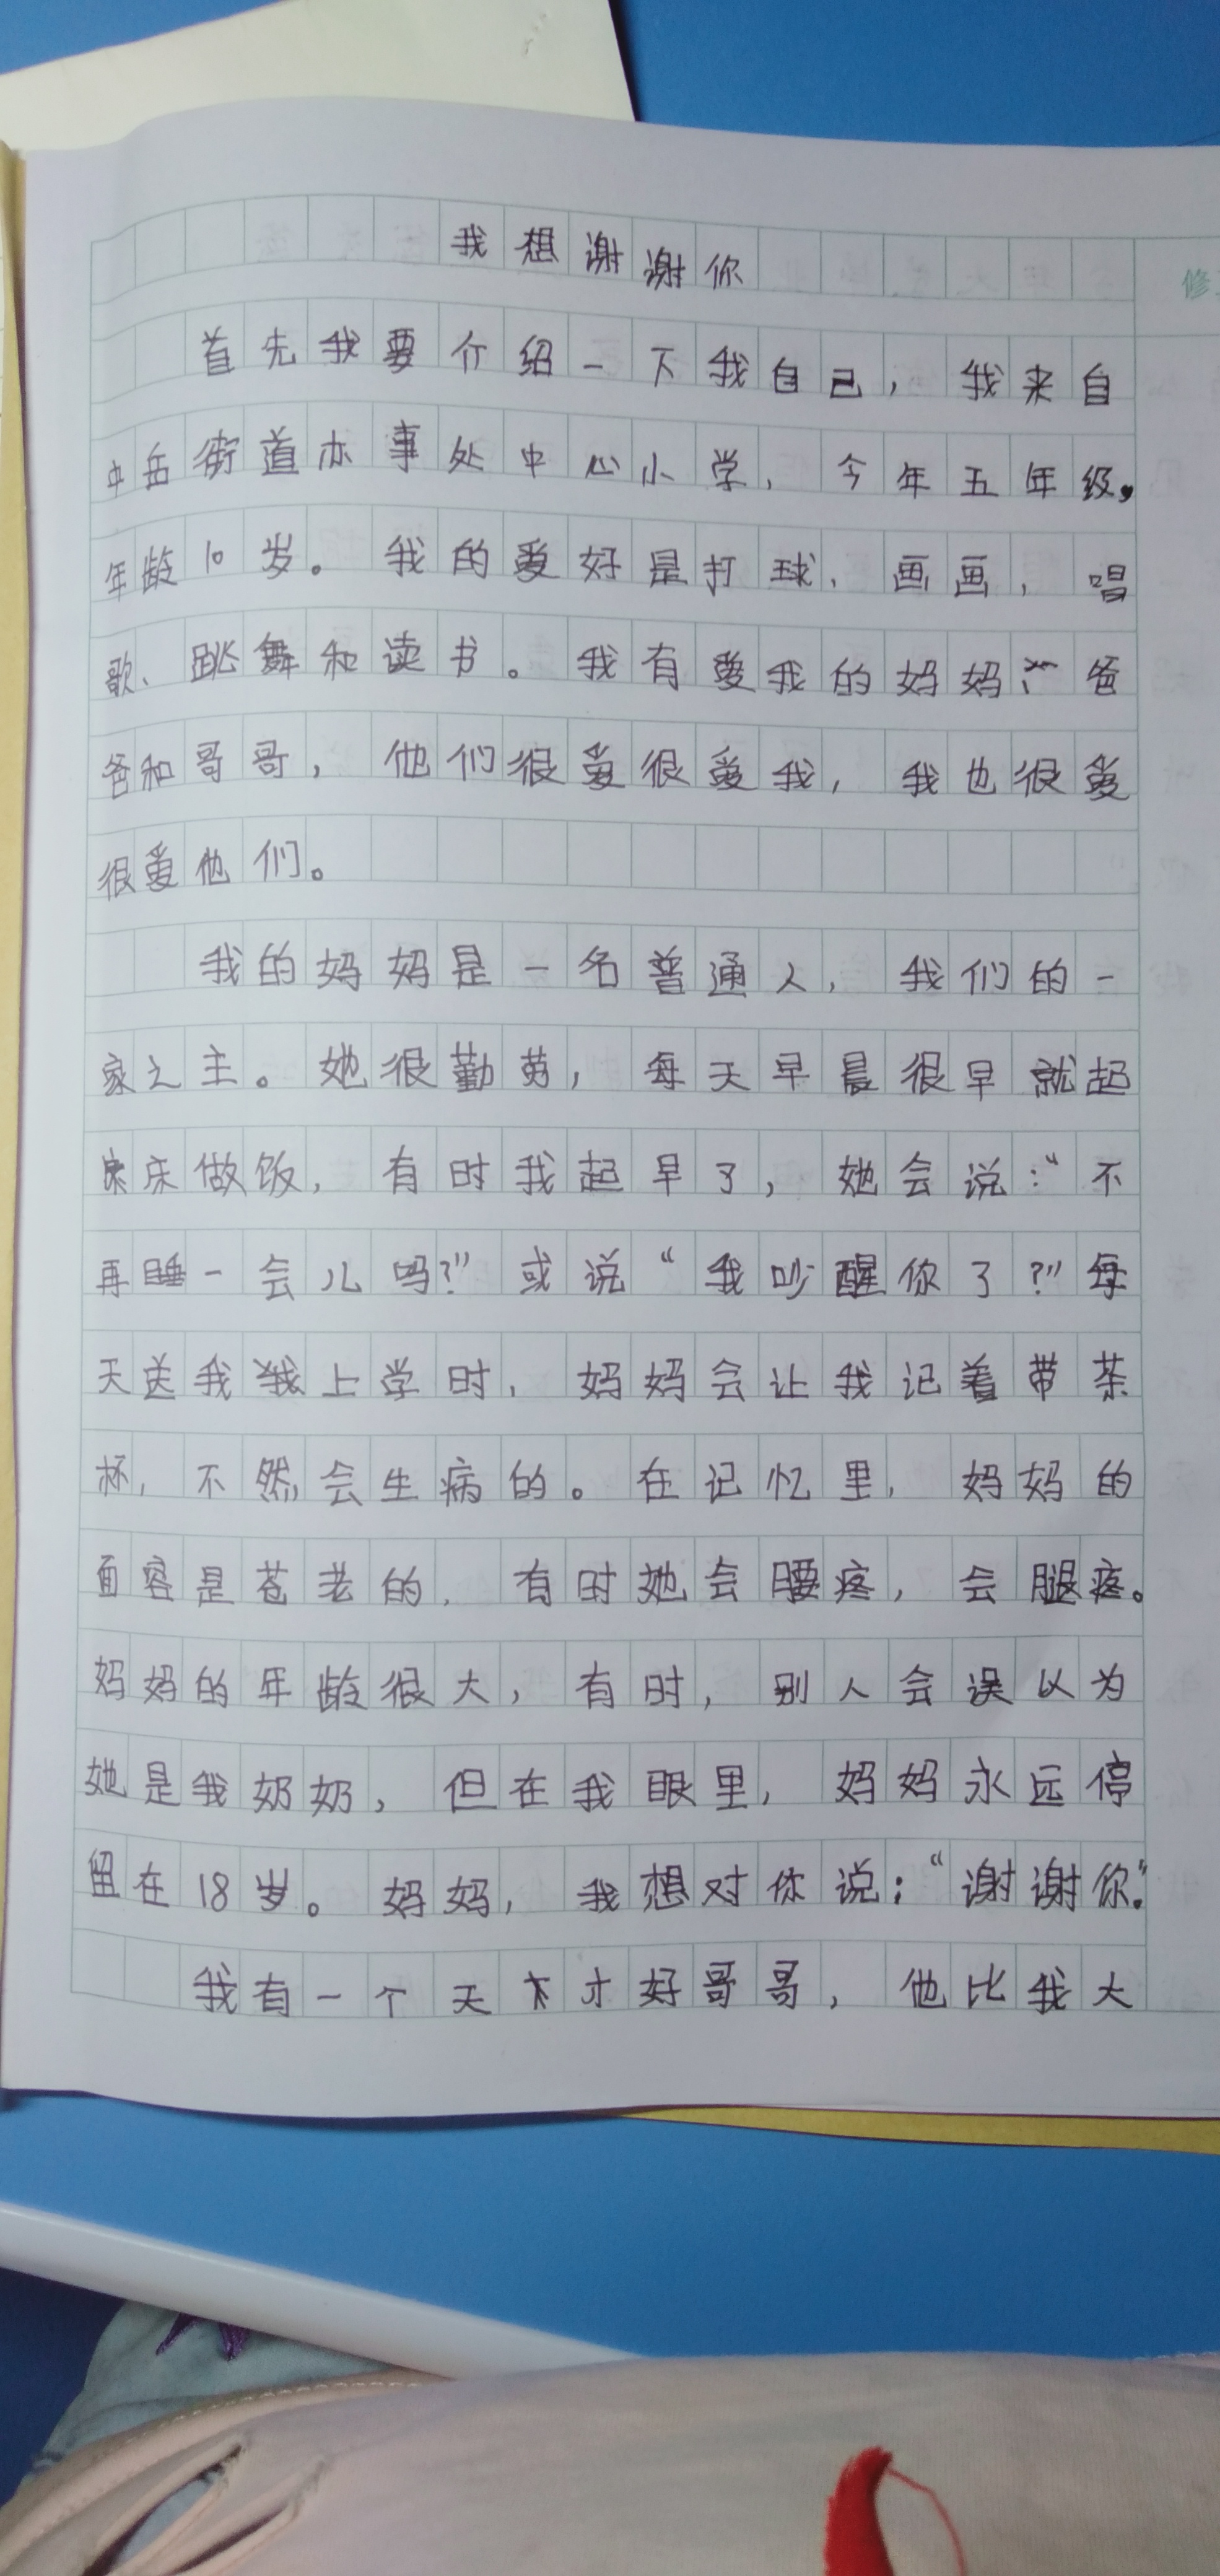 我想谢谢你
首先我要介绍一下我自己，我来自
中岳街道办事处中心小学，今年五年级，
年龄10岁。我的爱好是打球、画画，唱
歌、跳舞和读书。我有爱我的妈妈，爸
爸和哥哥，他们很爱很爱我，我也很爱
很爱他们。
我的妈妈是一名普通人，我们的一
家之主。她很勤劳，每天早晨很早就起
床做饭，有时我起早了，她会说：“不
再睡一会儿吗？”或说“我吵醒你了？”每
天送我上学时，妈妈会让我记着带茶
杯，不然会生病的。在记忆里，妈妈的
面容是苍老的，有时她会腰疼，会腿疼。
妈妈的年龄很大，有时，别人会误以为
她是我奶奶，但在我眼里，妈妈永远停
留在18岁。妈妈，我想对你说：“谢谢你。”
我有一个天才好哥哥，他比我大